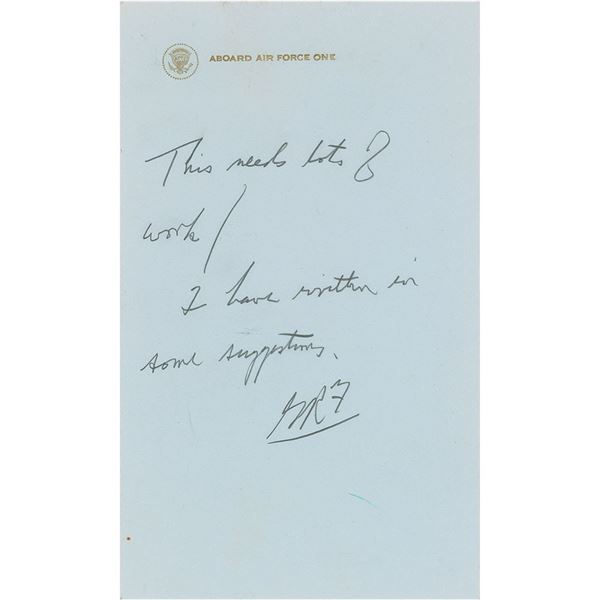 ABOARD AIR FORCE ONE
This needs lots of
work/
I have written in
some suggestions.
GRF